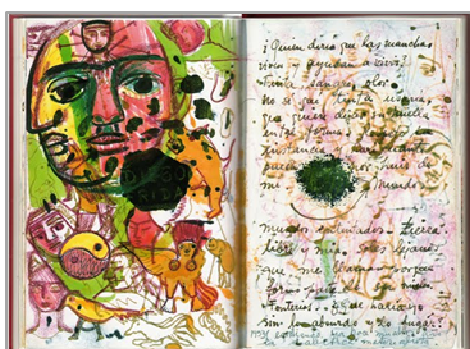 DIEGO
FRIDA
¡Quien diria que las manchas
viven y ayudan a vivir?
Tinta, sangre, olor.
No se que tinta usaria
que quiere dejar su huella
en tal forma.
instancia cuanto
pueda por huir de
mi Mundo
Mundos entintados - tierra
libre y mia. Soles lejanos
que me llaman porque
formo parte de su
Tonterias.
sin lo absurdo y lo fugaz?